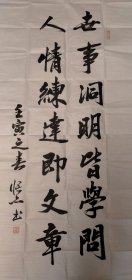 世事洞明皆學問
人情練達即文章
壬寅之春